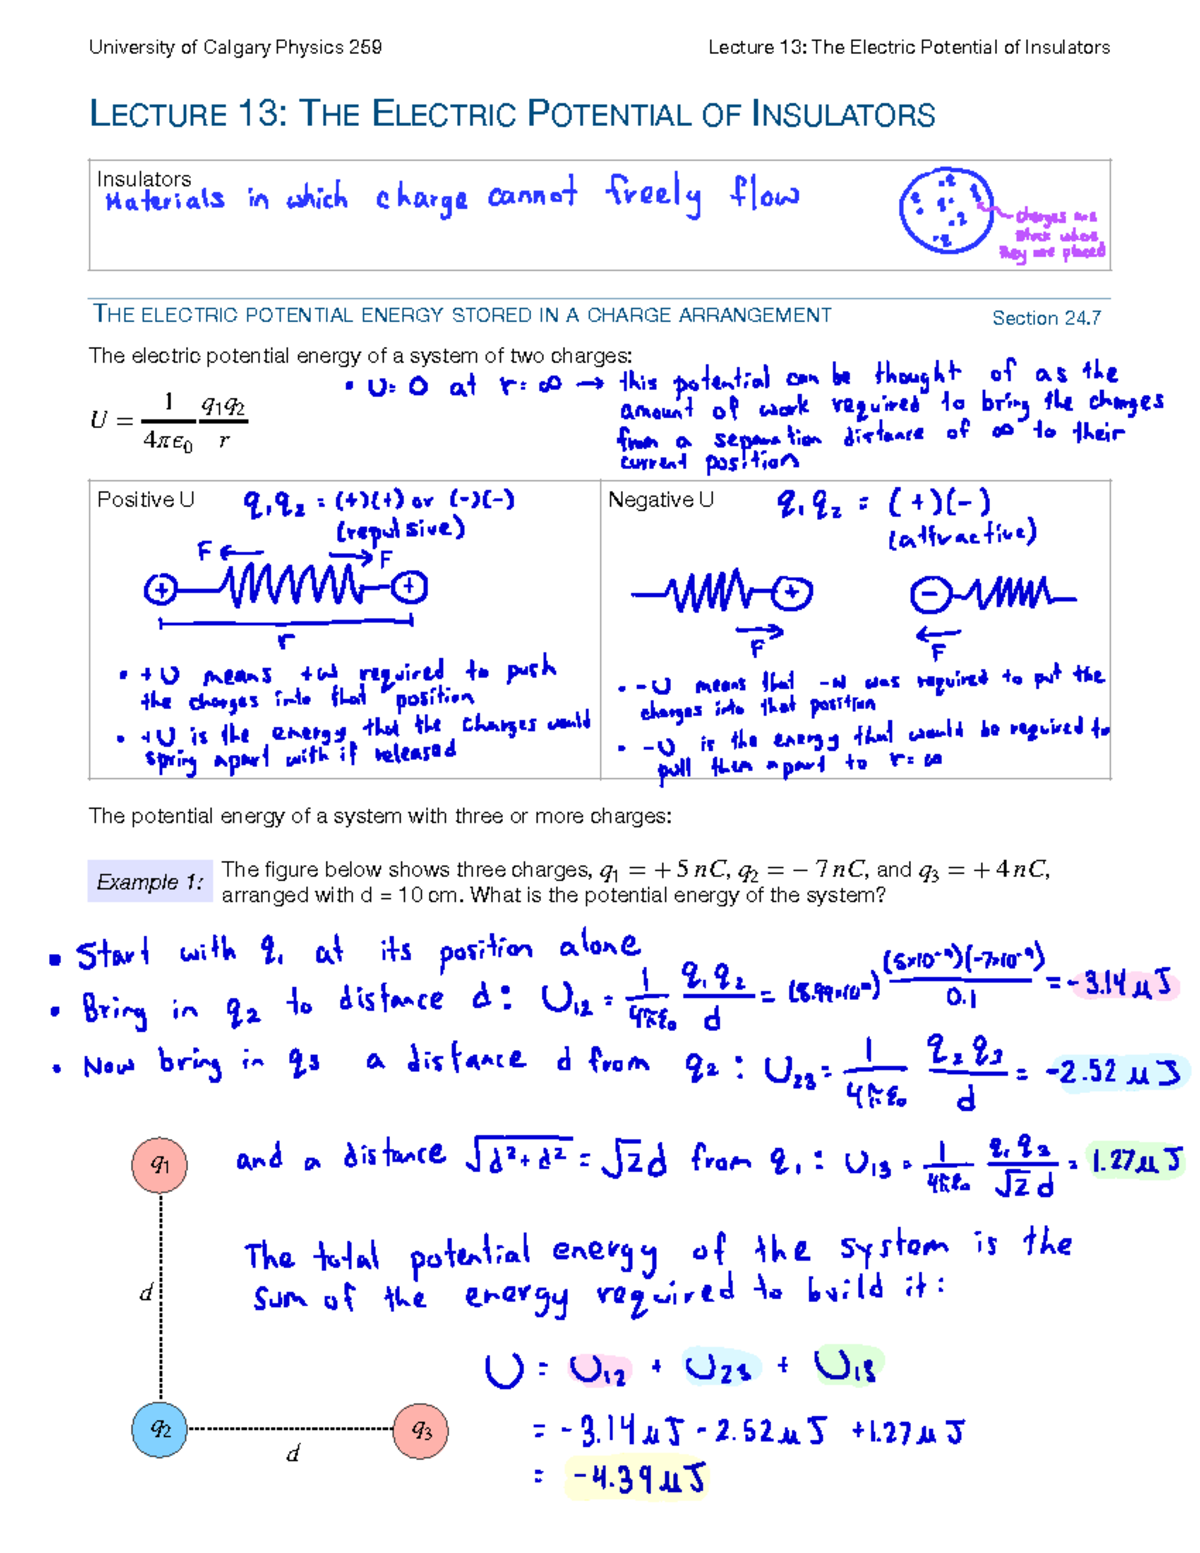 University of Calgary Physics 259
Lecture 13: The Electric Potential of Insulators
LECTURE 13: THE ELECTRIC POTENTIAL OF INSULATORS
Insulators
Materials in which charge cannot freely flow
charges are
stuck where
they are placed
THE ELECTRIC POTENTIAL ENERGY STORED IN A CHARGE ARRANGEMENT
Section 24.7
The electric potential energy of a system of two charges:
U = 1/4πε₀ q₁q₂/r
• U = 0 at r = ∞ → this potential can be thought of as the
amount of work required to bring the charges
from a separation distance of ∞ to their
current position
Positive U
q₁q₂ = (+)(+) or (-)(-)
(repulsive)
F ← → F
+ +
r
• +U means +W required to push
the charges into that position
• +U is the energy that the charges would
spring apart with if released
Negative U
q₁q₂ = (+)(-)
(attractive)
+ −
F → ← F
• -U means that -W was required to put the
charges into that position
• -U is the energy that would be required to
pull them apart to r = ∞
The potential energy of a system with three or more charges:
Example 1: The figure below shows three charges, q₁ = + 5 nC, q₂ = − 7 nC, and q₃ = + 4 nC,
arranged with d = 10 cm. What is the potential energy of the system?
• Start with q₁ at its position alone
• Bring in q₂ to distance d: U₁₂ = 1/4πε₀ q₁q₂/d = (8.99×10⁹) (5×10⁻⁹)(-7×10⁻⁹)/0.1 = -3.14 μJ
• Now bring in q₃ a distance d from q₂: U₂₃ = 1/4πε₀ q₂q₃/d = -2.52 μJ
and a distance √d²+d² = √2 d from q₁: U₁₃ = 1/4πε₀ q₁q₃/√2 d = 1.27 μJ
q₁
d
q₂
d
q₃
The total potential energy of the system is the
sum of the energy required to build it:
U = U₁₂ + U₂₃ + U₁₃
= -3.14 μJ - 2.52 μJ + 1.27 μJ
= -4.39 μJ